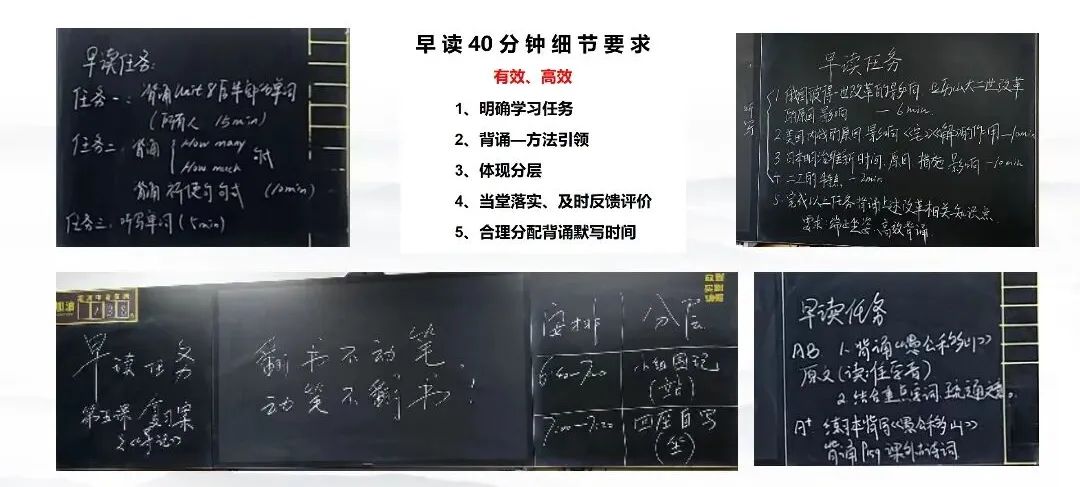 早读任务:
任务一:背诵Unit 8后半部分单词
(所有人 15min)
任务二:背诵 How many
How much 句式
背诵祈使句句式 (10min)
任务三:听写单词(5min)
早读40分钟细节要求
有效、高效
1、明确学习任务
2、背诵—方法引领
3、体现分层
4、当堂落实、及时反馈评价
5、合理分配背诵默写时间
早读任务
听写
1.俄国彼得一世改革的影响 亚历山大二世改革
的原因 影响 — 6min
2.美国内战的原因 影响《宅》《解》的作用—10min
3.日本明治维新时间.原因 措施 影响—10min
4.二工的特点 — 2min
5.完成以上任务背诵上述改革相关知识点
要求:端正坐姿、高效背诵.
早读任务
第五课 复习案
翻书不动笔,
动笔不翻书!
安排 分层
6:40—7:00 小组围记
(站)
7:00—7:20 回座自写
(坐)
早读任务
AB 1.背诵《愚公移山》
原文(读准字音)
2.结合重点实词 疏通
A+ 练习本背写《愚公移山》
背诵P159课外古诗词